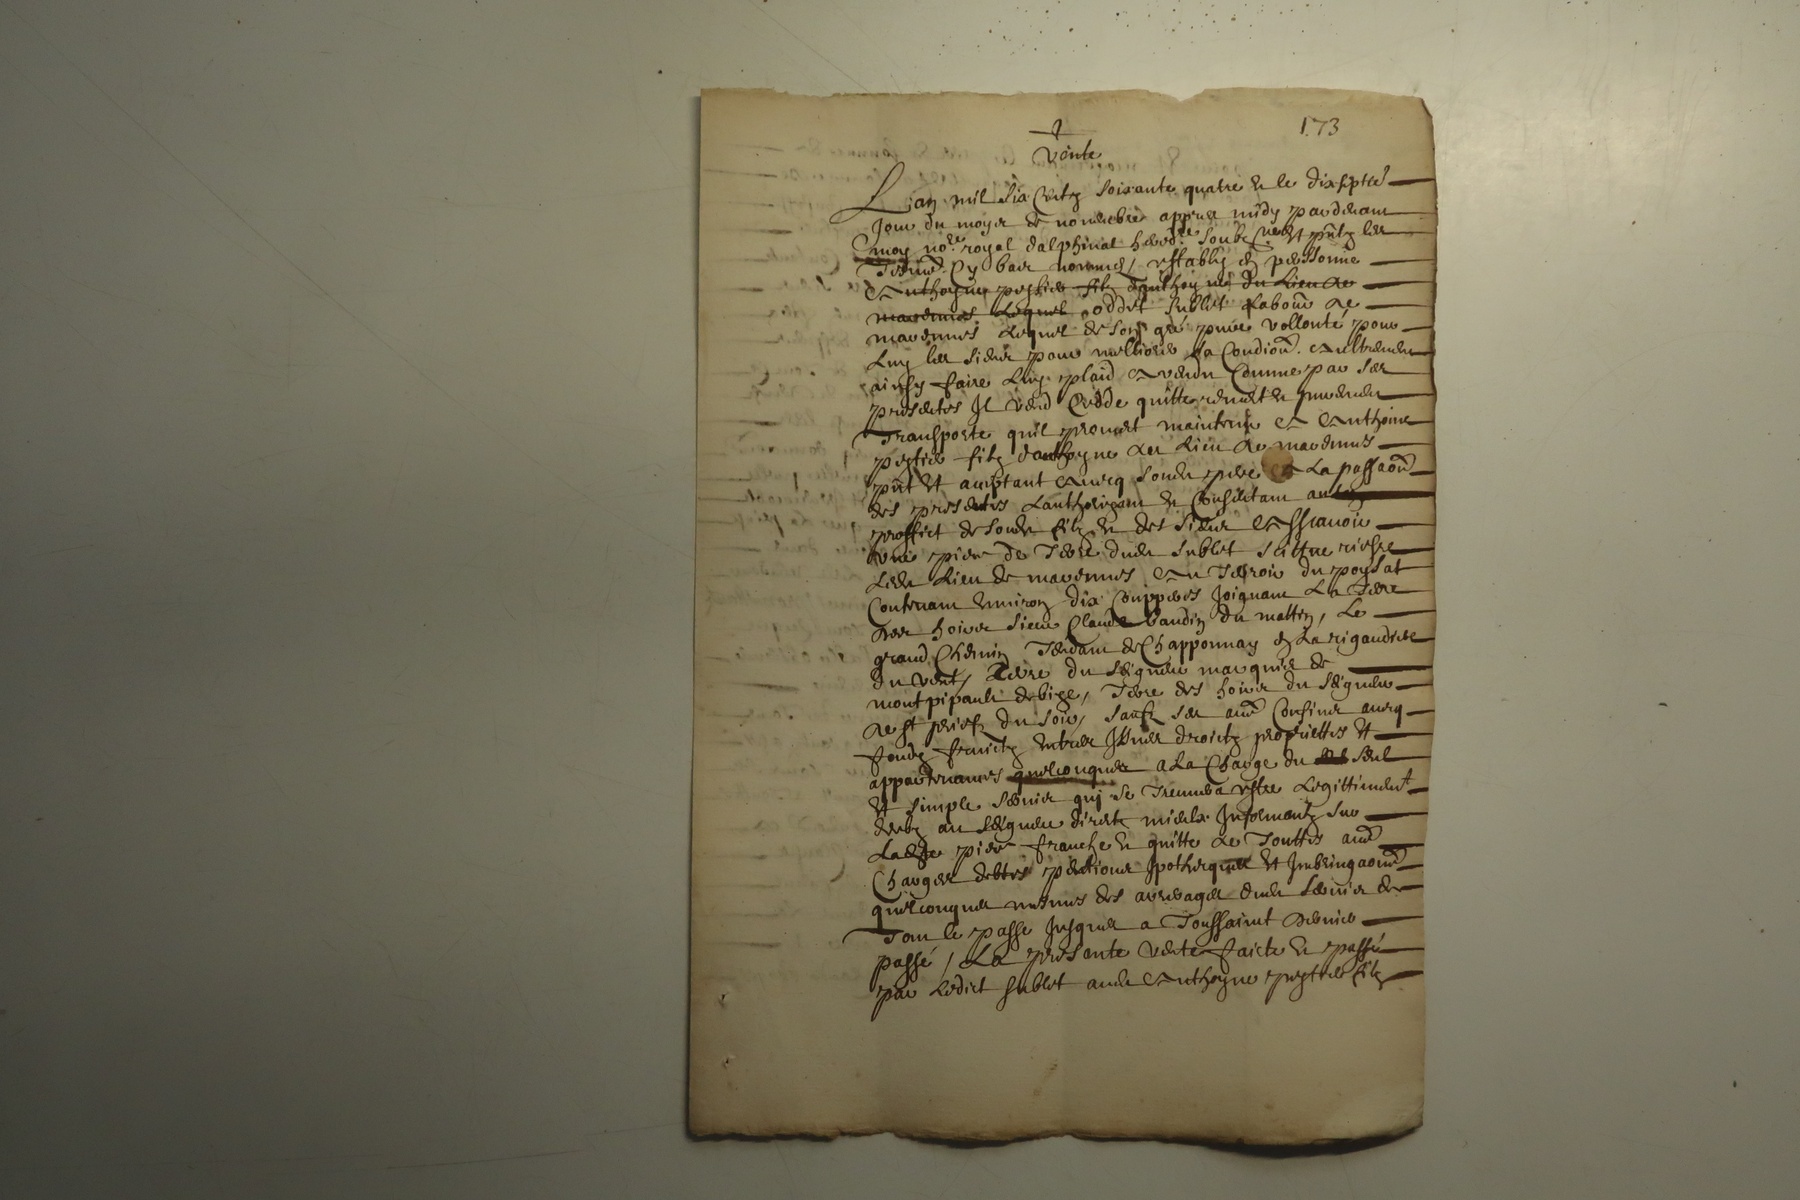 173
Vente
L'an mil six centz soixante quatre & le dixseptie
Jour du moys de novembre appres midy pardevant
moy no.re royal dalphinal hered.re soubz.né et pntz les
Tesm. Cy bas nommes, estably en personne
Anthoyne pestier filz d'anthoyne du lieu de
marennes lequel oddet sublet labour de
marennes Lequel de son gré pure vollonté pour
Luy les siens pour mellieure sa condion autrement
ainsy faire luy plaid a vendu comme par ses
presentes Il vend cedde quitte remet &
Transporte quil promet maintenir A Anthoine
pestier filz danthoyne du lieu de marennes
pnt et aceptant avecq sondt pere A La passaon
des presentes Lauthorizant & consentant au
proffict de sondt filz & des siens Assavoir
Une piece de Terre dudt sublet scittue riesre
ledt Lieu de marennes Au Terroir du poysat
Contenant environ dix couppees joignant La Terre
des hoirs sieur Claude baudin du mattin, Le
grand Chemin Tendant de Chapponnay en La rigaudiere
du vent, Terre du seigneur marquis de
montpipault debize, Terre des hoirs du seigneur
de st du soir, saufz ses aues Confins avecq
fondz fruictz entrees Issues droictz proprietes et
appartenances quelconques a La Charge du seul
et simple servis qui se Treuvera estre Legittiment
deub au seigneur direct mieulx Informant sur
Ladte piece franche & quitte de Touttes aues
Charges debtes pentions Ipotheques et
quelconques mesmes des arrerages dudt servis de
Tout le passe Jusques a Toussainct dernier
passé, La presente vente faicte & passé
par Ledict sublet audt Anthoyne pestier filz